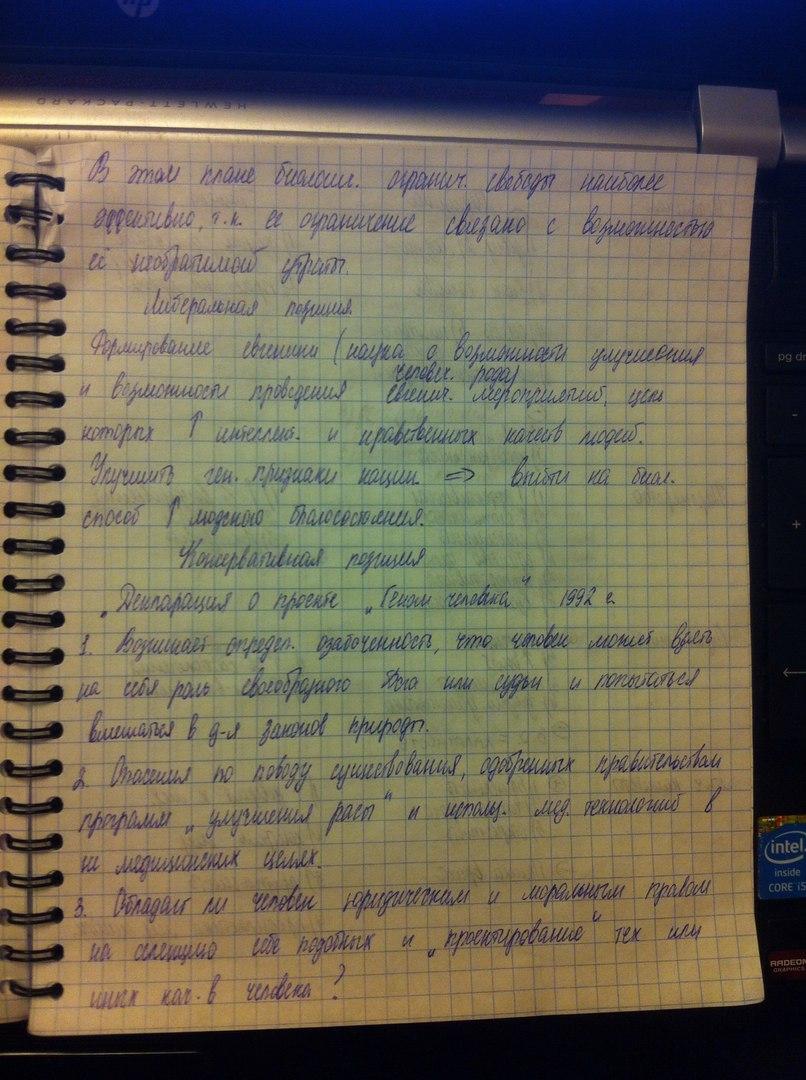 hp
HEWLETT-PACKARD
В этом плане биологич. огранич. свободы наиболее
эффективно, т.к. её ограничение связано с возможностью
её необратимой утраты.
Либеральная позиция.
Формирование евгеники (наука о возможности улучшения
человек. рода)
и возможности проведения евгенич. мероприятий, цель
которых ↑ интеллект. и нравственных качеств людей.
Улучшить ген. признаки нации ⇒ выйти на биол.
способ ↑ людского благосостояния.
Консервативная позиция
„Декларация о проекте „Геном человека“ 1992 г.
1. Возникает определ. озабоченность, что человек может взять
на себя роль своеобразного Бога или судьи и попытаться
вмешаться в д-я законов природы.
2. Опасения по поводу существования, одобренных правительством
программ „улучшения расы“ и использ. мед. технологий в
не медицинских целях.
3. Обладает ли человек юридическим и моральным правом
на селекцию себе подобных и „проектирование“ тех или
иных кач-в человека?
pg dn
intel
inside
CORE i5
RADEON
GRAPHICS